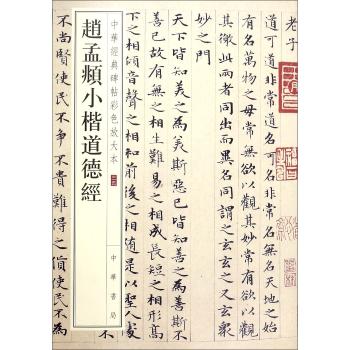 老子
道可道非常道名可名非常名無名天地之始
有名萬物之母常無欲以觀其妙常有欲以觀
其徼此兩者同出而異名同謂之玄玄之又玄衆
妙之門
天下皆知美之為美斯惡已皆知善之為善斯不
善已故有無之相生難易之相成長短之相形高
下之相傾音聲之相和前後之相隨是以聖人處
中華經典碑帖彩色放大本
中華書局
趙孟頫小楷道德經
不尚賢使民不爭不貴難得之貨使民不